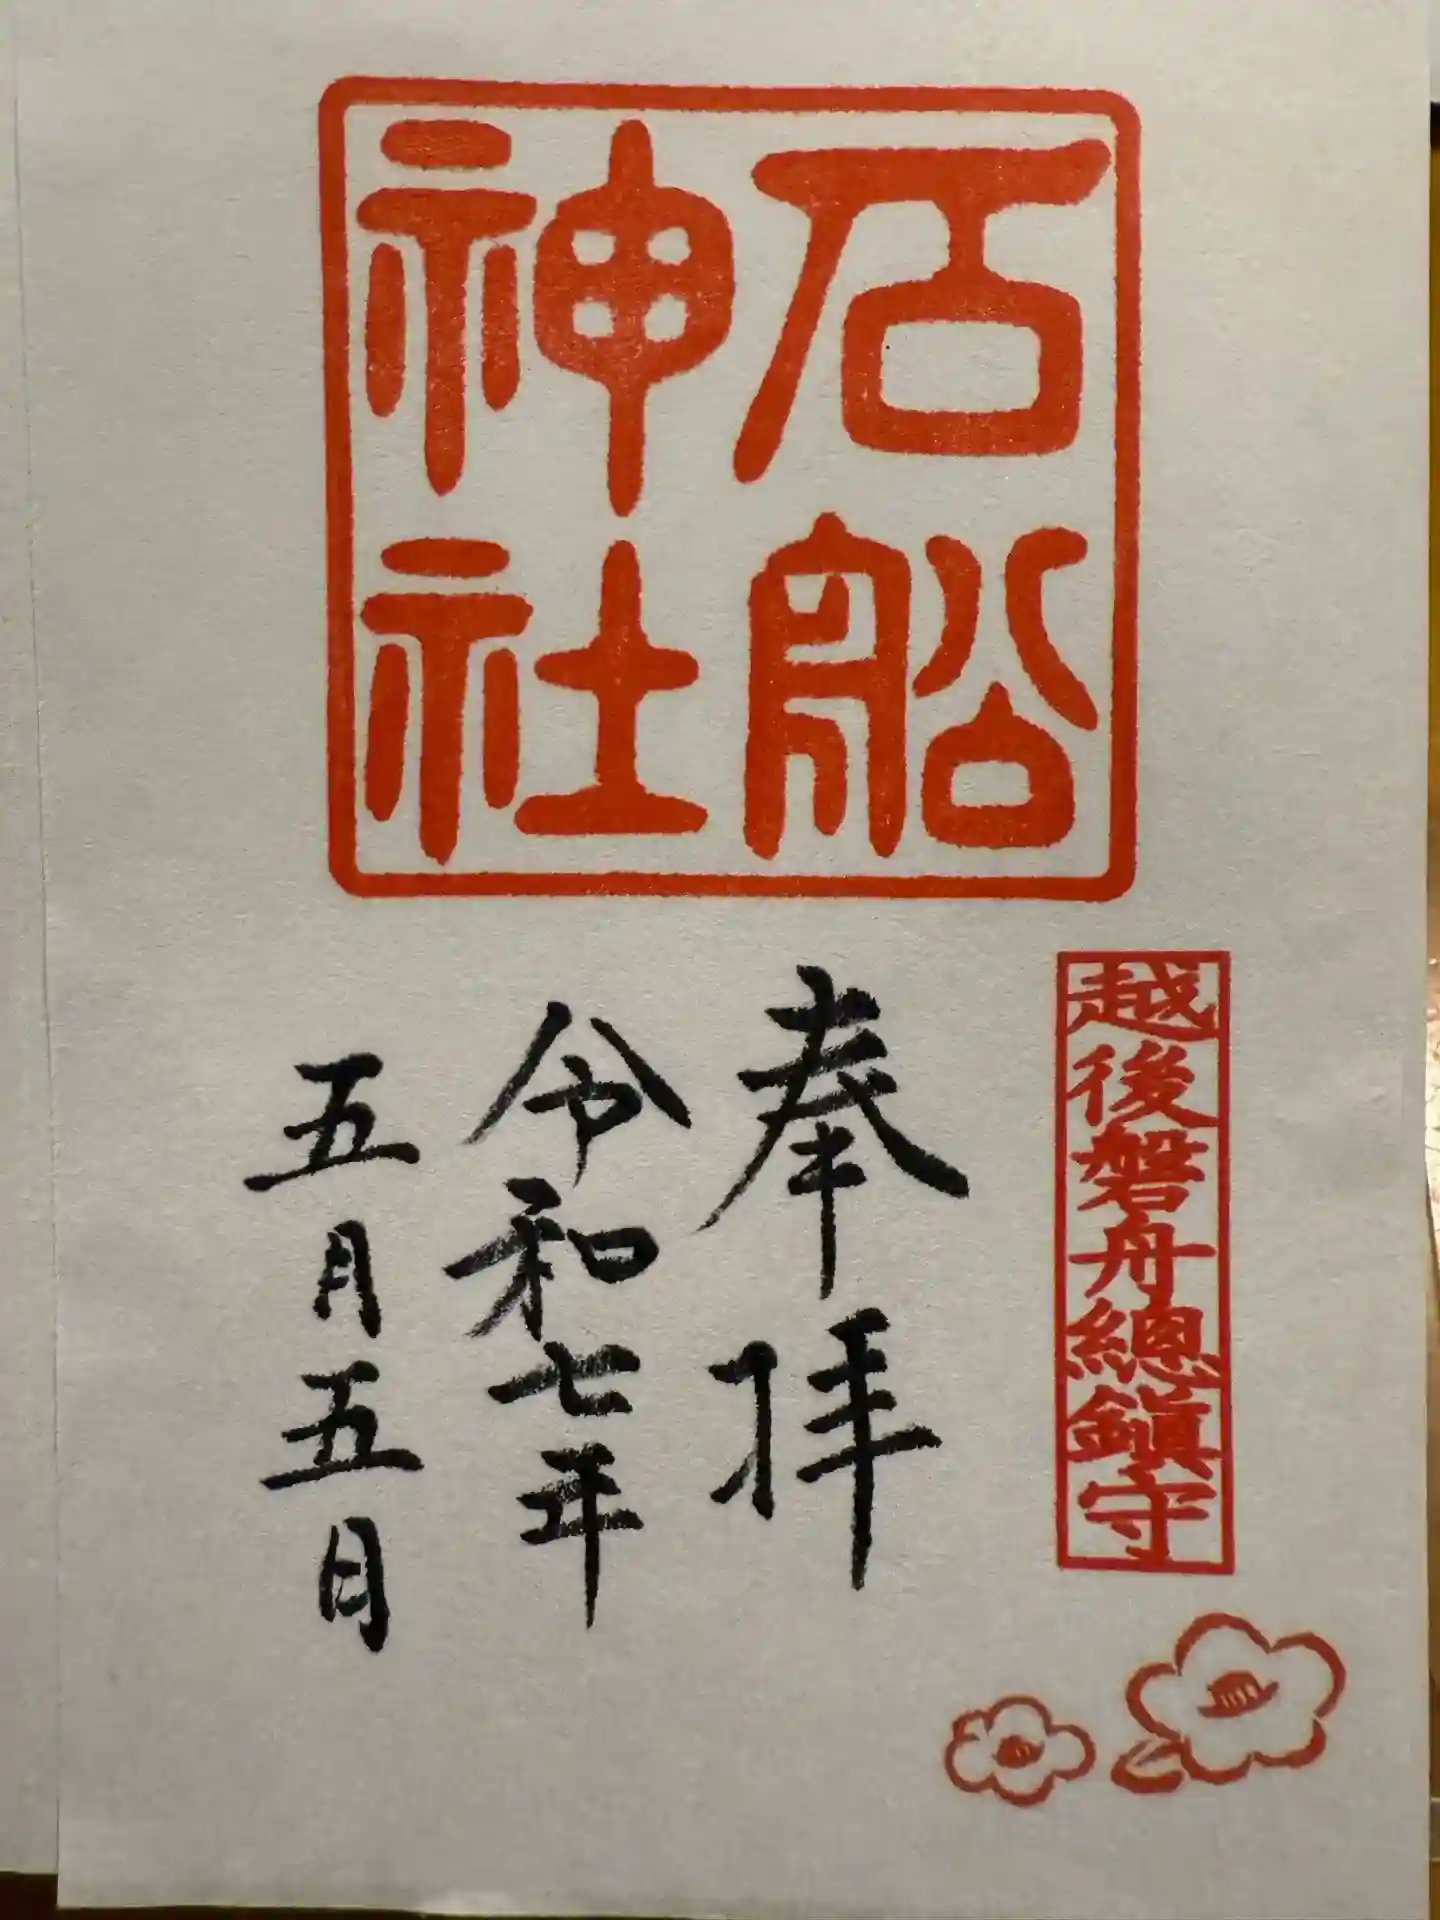 石船
神社
越後磐舟總鎮守
奉拝
令和七年
五月五日